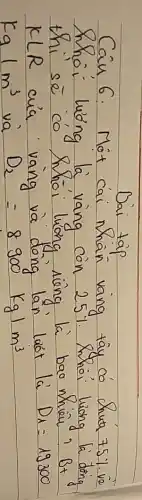 Bài tập
Câu 6: Một cái nhẫn vàng tây có chứa 75% về
khối lượng là vàng còn 25% khối lượng là đồng
thì sẽ có khối lượng riêng là bao nhiêu? Bt
KLR của vàng và đồng lần lượt là D1 = 19300
Kg/m³ và D2 = 8900 Kg/m³